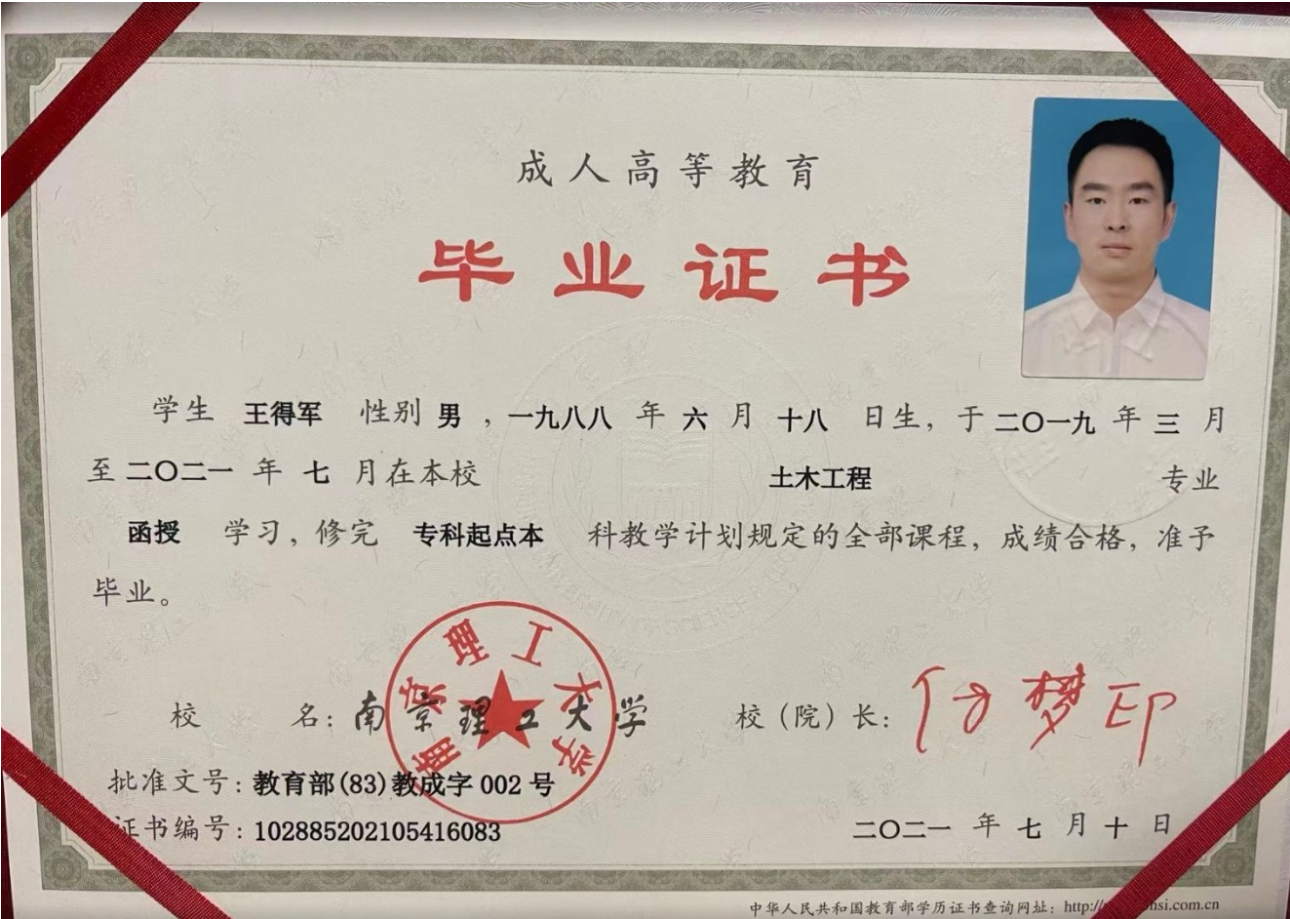 成人高等教育
毕业证书
学生 王得军 性别 男 ，一九八八 年 六 月 十八 日生，于 二〇一九 年 三 月
至 二〇二一 年 七 月在本校 土木工程 专业
函授 学习，修完 专科起点本 科教学计划规定的全部课程，成绩合格，准予
毕业。
南京理工大学
校 名：南京理工大学 校（院）长：付梦印
批准文号：教育部(83)教成字 002 号
证书编号：102885202105416083 二〇二一 年 七 月 十 日
中华人民共和国教育部学历证书查询网址：http://hsi.com.cn